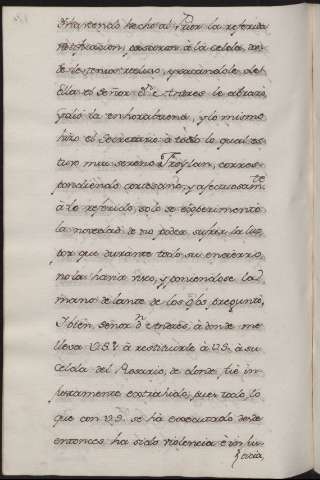 Y haviendo hecho al Prior la referida
notificacion, pasaron à la celda, don-
de le tenia recluso, y sacandole de
ella el señor Dn. Andres le abrazo,
y diò la enhorabuena, y lo mismo
hizo el Secretario à todo lo qual es-
tuvo mui sereno Froylan, corres-
pondiendo cortesano, y afectuosamte.
à lo referido, solo se experimentó
la novedad de no poder sufrir la luz
por que durante todo su encierro,
no la havia visto, y poniendose la
mano delante de los ojos preguntó,
Y bien, señor Dn. Andrès, à donde me
lleva V.S.? à restituirle à V.S. à su
Celda del Rosario, de donde fuè in-
justamente extrahido, pues todo lo
que con V.S. se há executado desde
entonces ha sido violencia è inju-
sticia,